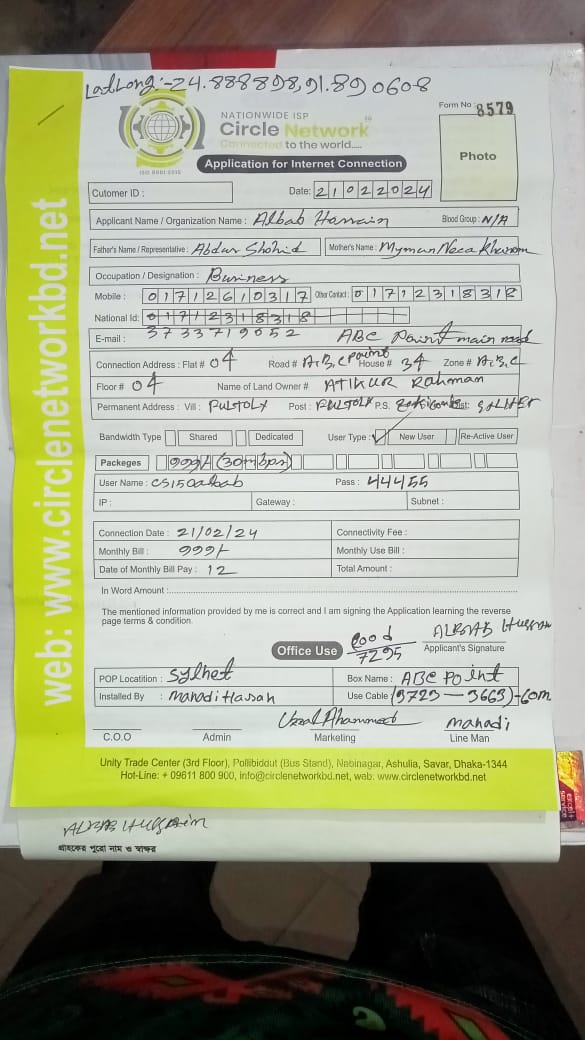 LatLong:-24.888898,91.890608
Form No : 8579
NATIONWIDE ISP
Circle Network
Connected to the world....
ISO 9001:2015
Application for Internet Connection
Photo
Cutomer ID :
Date: 21022024
Applicant Name / Organization Name : Albab Hossain
Blood Group : N/A
Father's Name / Representative : Abdur Shohid
Mother's Name : Mymun Neca Khanom
Occupation / Designation : Business
Mobile : 01712610317 Other Contact : 01712318318
National Id: 01712318318
3733719052
E-mail : ABC Point main road
Connection Address : Flat # 04 Road # A,B,C Point House # 34 Zone # A,B,C
Floor # 04 Name of Land Owner # ATIKUR Rahman
Permanent Address : Vill : PULTOLY Post : PULTOLY P.S. Dist: SYLHET
Bandwidth Type Shared Dedicated User Type : ✓ New User Re-Active User
Packeges 999/- (30mbps)
User Name : Pass : 44455
IP : Gateway : Subnet :
Connection Date : 21/02/24 Connectivity Fee :
Monthly Bill : 999/- Monthly Use Bill :
Date of Monthly Bill Pay : 12 Total Amount :
In Word Amount :
The mentioned information provided by me is correct and I am signing the Application learning the reverse
page terms & condition.
ALBAB Hussain
Office Use
7295
Applicant's Signature
POP Locatition : Sylhet Box Name : ABC Point
Installed By : Mahadi Hassan Use Cable (3723-3663)-60m
Mahadi
C.O.O Admin Marketing Line Man
Unity Trade Center (3rd Floor), Pollibiddut (Bus Stand), Nabinagar, Ashulia, Savar, Dhaka-1344
Hot-Line: + 09611 800 900, info@circlenetworkbd.net, web: www.circlenetworkbd.net
web: www.circlenetworkbd.net
ALBAB Hussain
গ্রাহকের পুরো নাম ও স্বাক্ষর